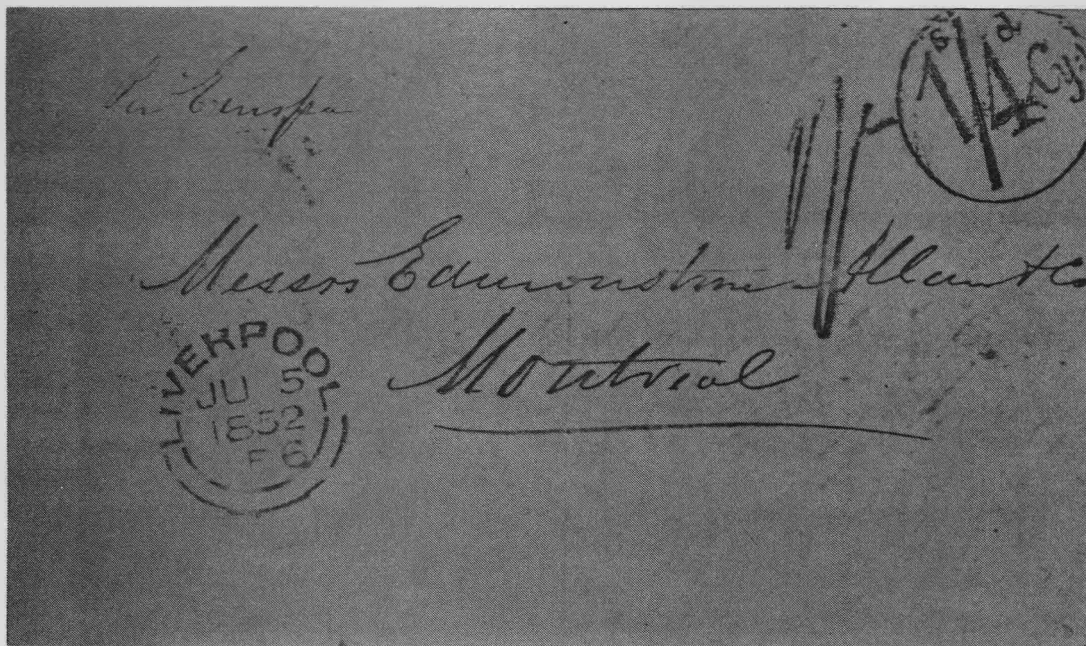 Per Europa
1/-
1s/4d Cy
Messrs Edmonstone Allan & Co
Montreal
LIVERPOOL
JU 5
1852
F 6